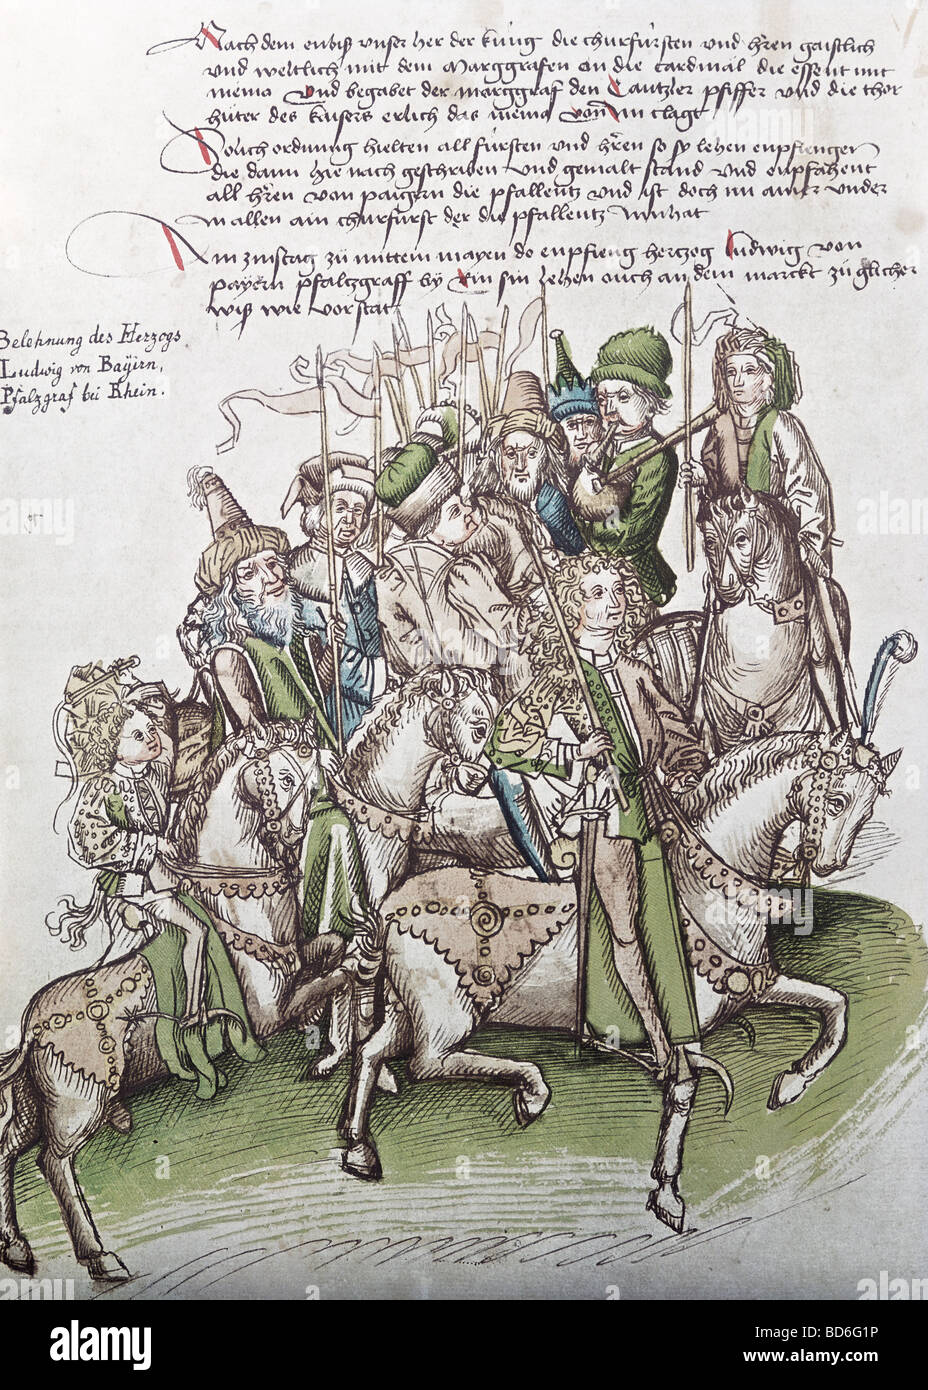 Nach dem enbiß unser her der kung die churfürsten und hren gaistlich
und weltlich mit dem Marggrafen on die cardinäl die essent mit
niemā Und begabet der marggraf den Cantzler pfiffer und die thor
hüter des kaisers erlich das niema von im clagt
Solich ordnung hielten all fürsten und hren so sy lehen enpfiengen
die dann hie nach geschriben und gemalt stand und enpfahent
all hren von paigern die pfallentz und ist doch nu ainer under
in allen ain churfürst der die pfallentz innhat
Am zinstag zü mittem mayen do enpfieng herczog Ludwig von
payern pfaltzgraff by Rin sin lehen ouch an dem marckt zü glicher
wiß wie vorstat
Belehnung des Herzogs
Ludwig von Bayirn,
Pfalzgraf bei Rhein.
alamy
Image ID: BD6G1P
www.alamy.com